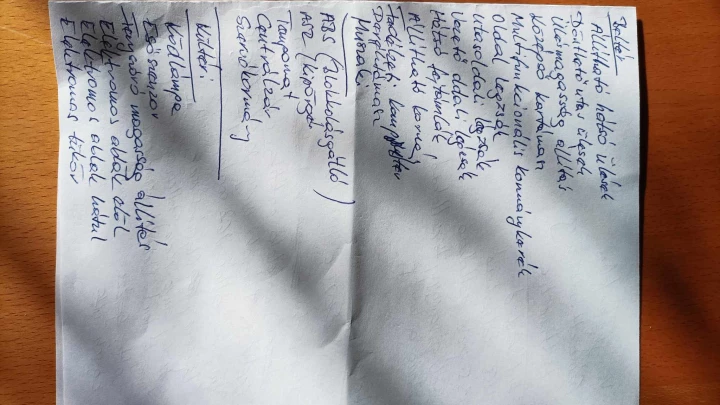 Beltér
Állítható hátsó ülések
Dönthető utas ülések
Ülésmagasság állítás
Középső kartámasz
Multifunkcionális kormánykerék
Oldal légzsák
Utasoldali légzsák
Vezető oldali légzsák
Hátsó fejtámlák
Állítható kormány
Fedélzeti komputer
Műszaki
ABS (blokkolásgátló)
ASR (kipörgés
Tempomat
Centrálzár
Szervokormány
Kültéri
Ködlámpa
Esőszenzor
Fényszóró magasság állítás
Elektromos ablak elöl
Elektromos ablak hátul
Elektromos tükör